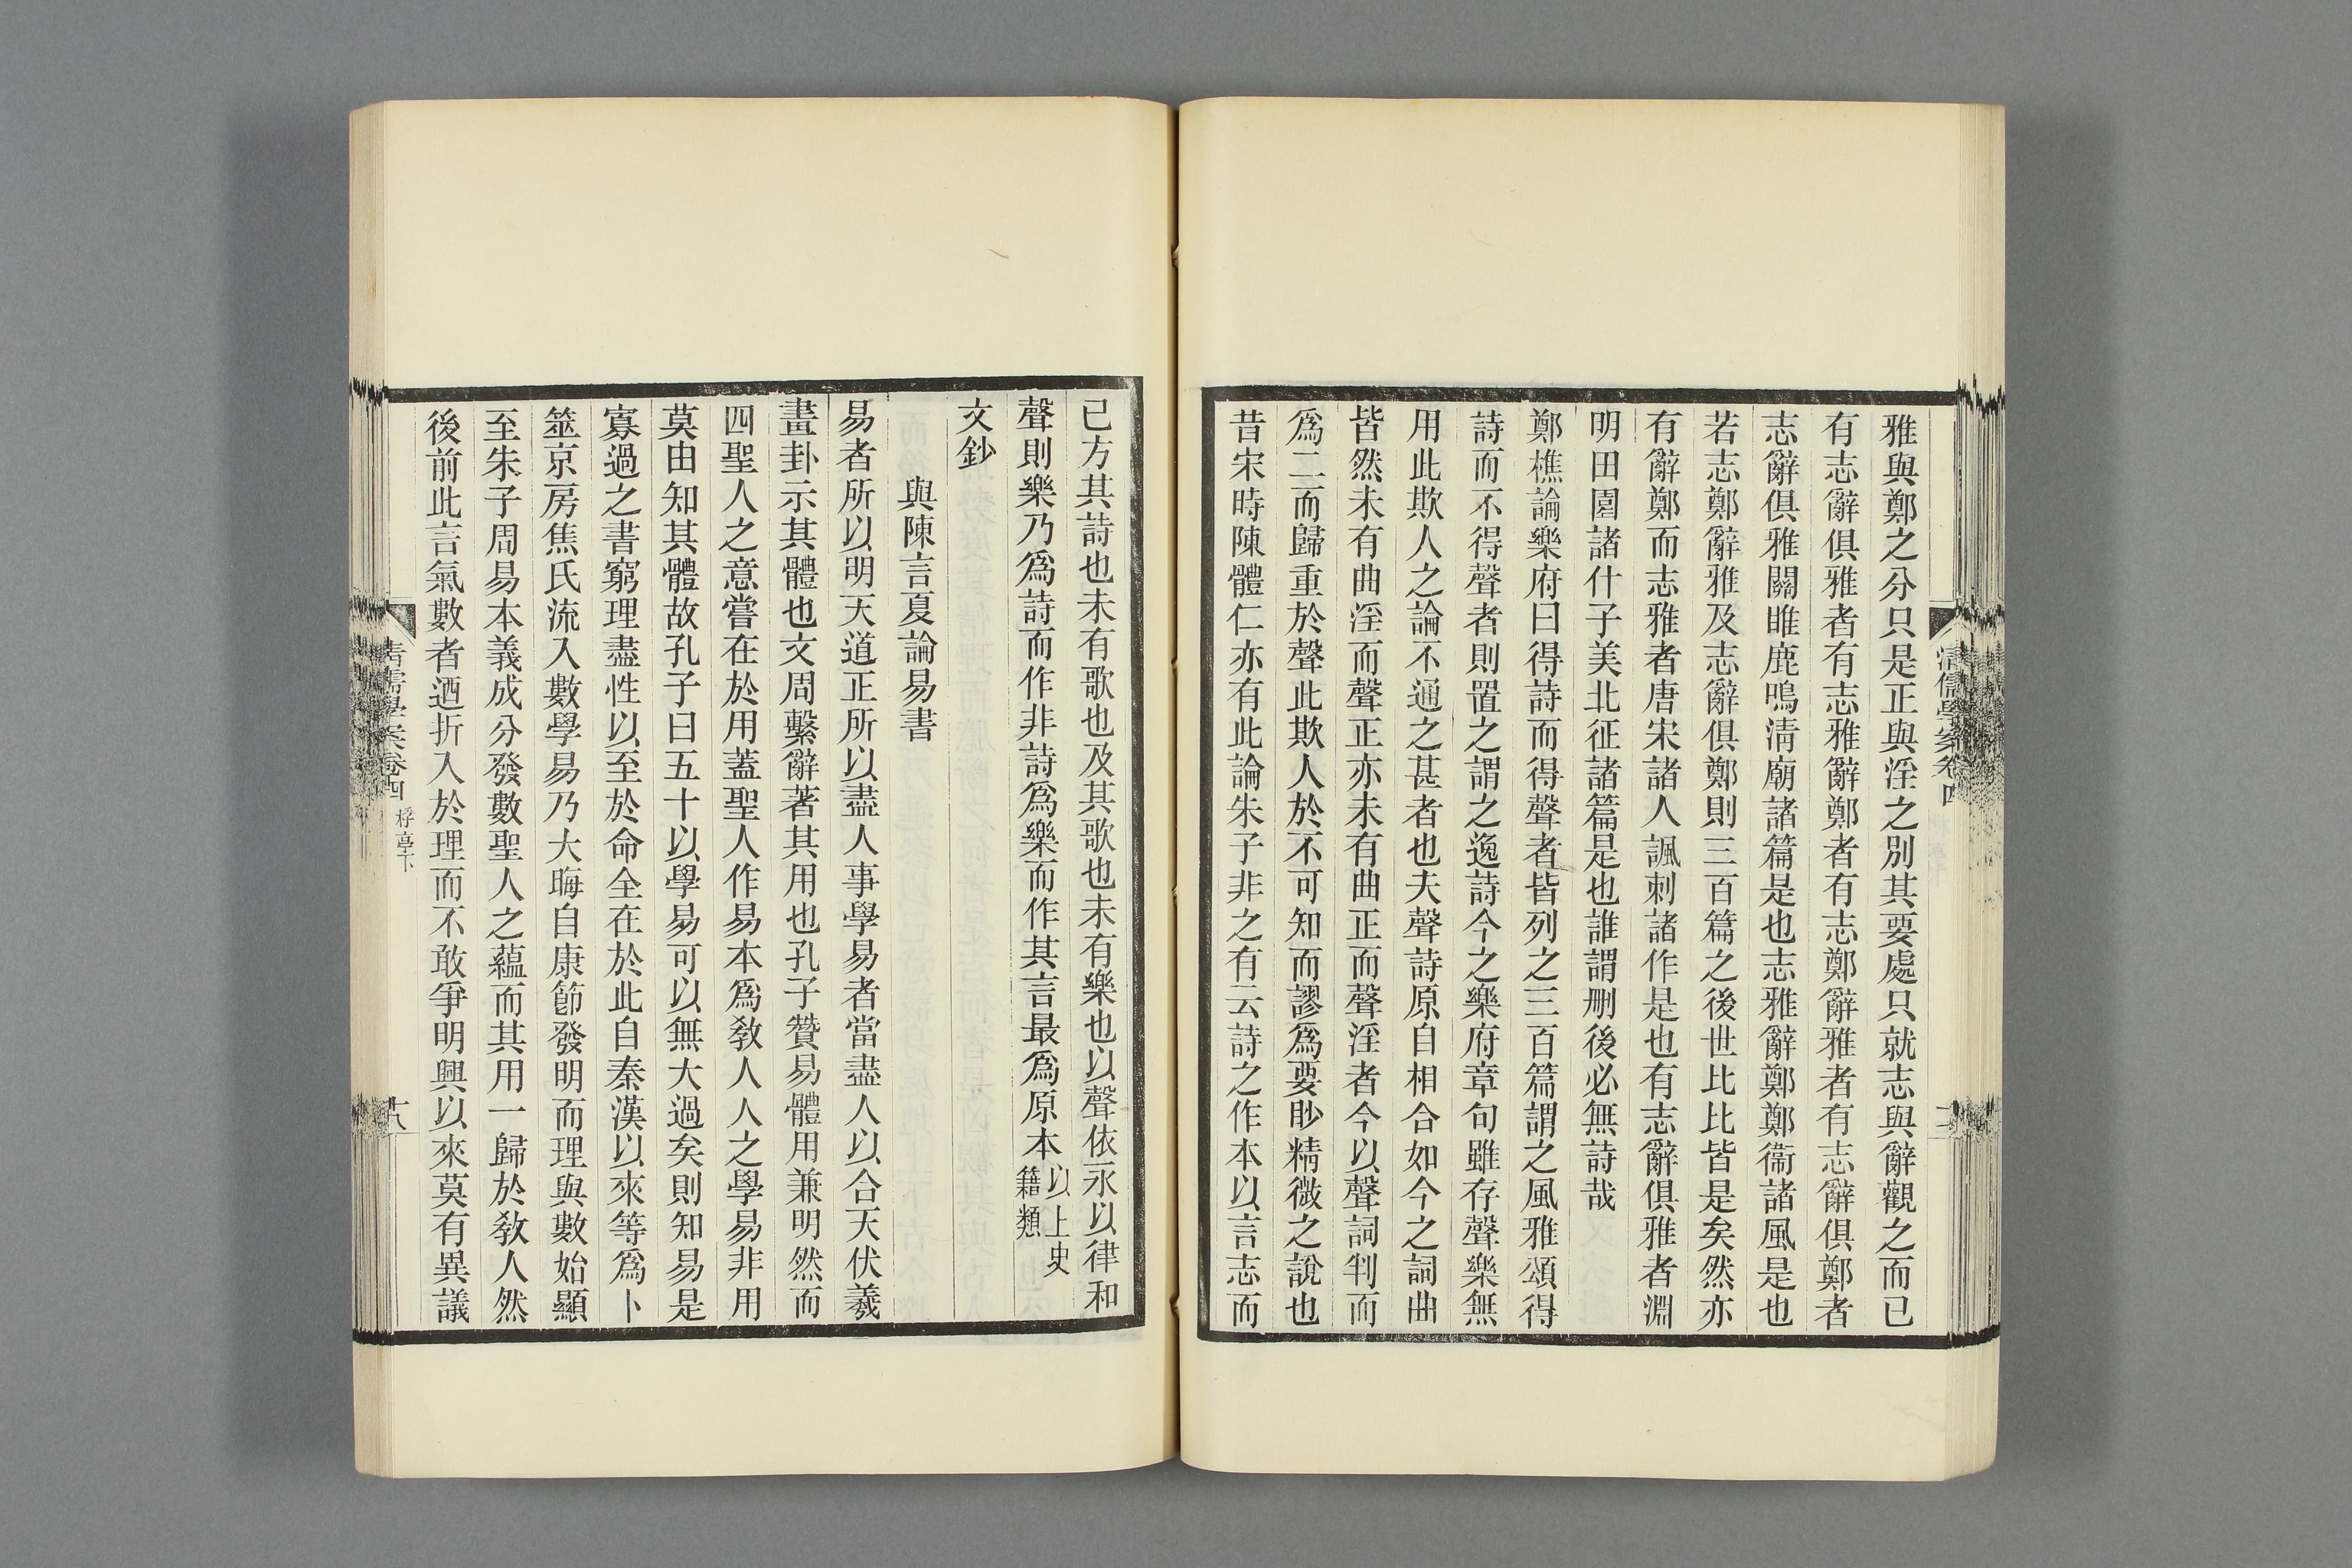 雅與鄭之分只是正與淫之別其要處只就志與辭觀之而已
有志辭俱雅者有志雅辭鄭者有志鄭辭雅者有志辭俱鄭者
志辭俱雅關睢鹿鳴清廟諸篇是也志雅辭鄭鄭衞諸風是也
若志鄭辭雅及志辭俱鄭則三百篇之後世比比皆是矣然亦
有辭鄭而志雅者唐宋諸人諷刺諸作是也有志辭俱雅者淵
明田園諸什子美北征諸篇是也誰謂刪後必無詩哉
鄭樵論樂府曰得詩而得聲者皆列之三百篇謂之風雅頌得
詩而不得聲者則置之謂之逸詩今之樂府章句雖存聲樂無
用此欺人之論不通之甚者也夫聲詩原自相合如今之詞曲
皆然未有曲淫而聲正亦未有曲正而聲淫者今以聲詞判而
爲二而歸重於聲此欺人於不可知而謬爲要眇精微之說也
昔宋時陳體仁亦有此論朱子非之有云詩之作本以言志而
已方其詩也未有歌也及其歌也未有樂也以聲依永以律和
聲則樂乃爲詩而作非詩爲樂而作其言最爲原本以上史籍類
文鈔
與陳言夏論易書
易者所以明天道正所以盡人事學易者當盡人以合天伏羲
畫卦示其體也文周繫辭著其用也孔子贊易體用兼明然而
四聖人之意嘗在於用蓋聖人作易本爲敎人人之學易非用
莫由知其體故孔子曰五十以學易可以無大過矣則知易是
寡過之書窮理盡性以至於命全在於此自秦漢以來等爲卜
筮京房焦氏流入數學易乃大晦自康節發明而理與數始顯
至朱子周易本義成分發數聖人之蘊而其用一歸於敎人然
後前此言氣數者迺折入於理而不敢爭明興以來莫有異議
清儒學案卷四
桴亭下
十八